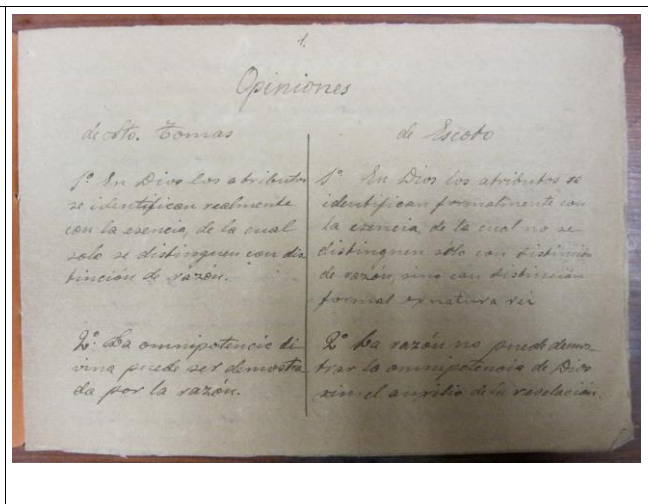 1.
Opiniones
de Sto. Tomas
1º En Dios los atributos
se identifican realmente
con la esencia, de la cual
solo se distinguen con dis
tinción de razón.
2º La omnipotencia di
vina puede ser demostra
da por la razón.
de Escoto
1º En Dios los atributos se
identifican formalmente con
la esencia, de la cual no se
distinguen sólo con distinción
de razón, sino con distinción
formal ex natura rei
2º La razón no puede demos_
trar la omnipotencia de Dios
sin el auxilio de la revelación.